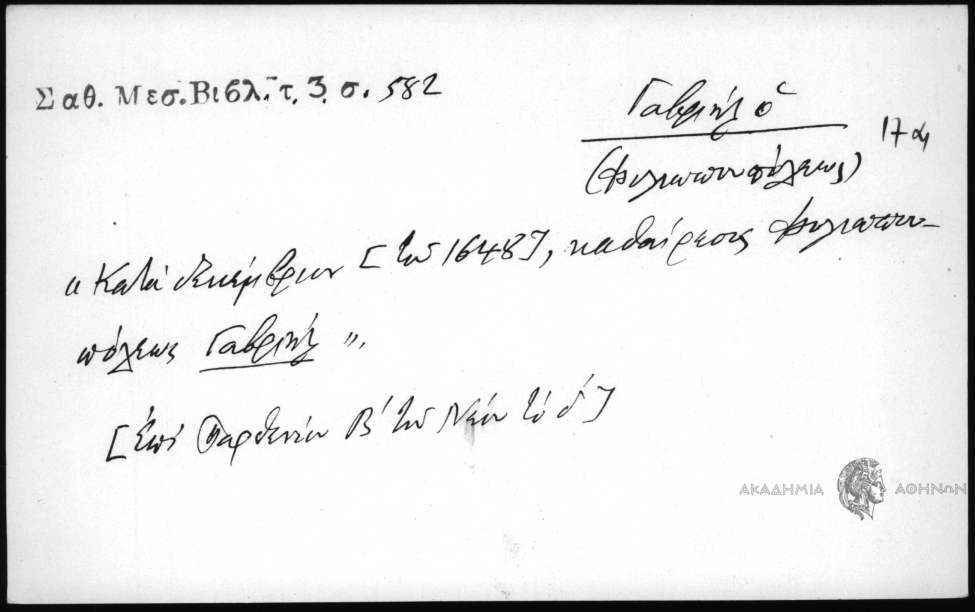 Σαθ. Μεσ. Βιβλ. τ. 3. σ. 582
Γαβριήλ ὁ
(Φιλιππουπόλεως)
17 αι
« Κατά Δεκέμβριον [τοῦ 1648], καθαίρεσις Φιλιππου-
πόλεως Γαβριήλ ».
[Ἐπί Παρθενίου Β΄ τοῦ Νέου τό β΄]
ΑΚΑΔΗΜΙΑ ΑΘΗΝΩΝ